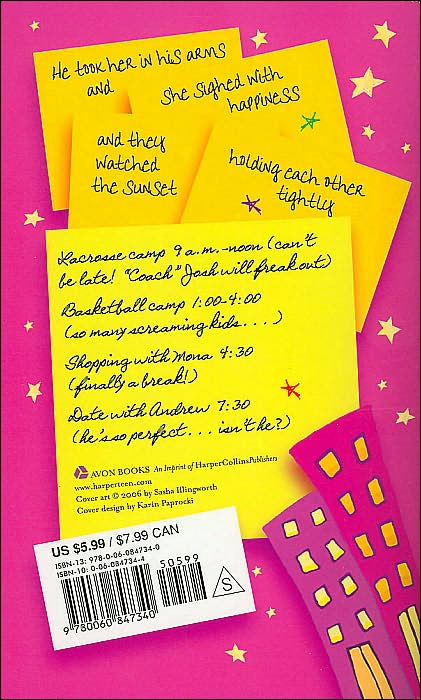 He took her in his arms
and
She sighed with
happiness
and they
watched
the sunset
holding each other
tightly
Lacrosse camp 9 a.m.–noon (can't
be late! "Coach" Josh will freak out)
Basketball camp 1:00-4:00
(so many screaming kids. . . )
Shopping with Mona 4:30
(finally a break!)
Date with Andrew 7:30
(he's so perfect . . . isn't he?)
AVON BOOKS An Imprint of HarperCollinsPublishers
www.harperteen.com
Cover art © 2006 by Sasha Illingworth
Cover design by Karin Paprocki
US $5.99 / $7.99 CAN
ISBN-13: 978-0-06-084734-0
ISBN-10: 0-06-084734-4
50599
S
9 780060 847340